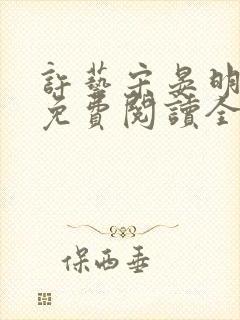 許藝宋晏明
免費閱讀全
保西垂